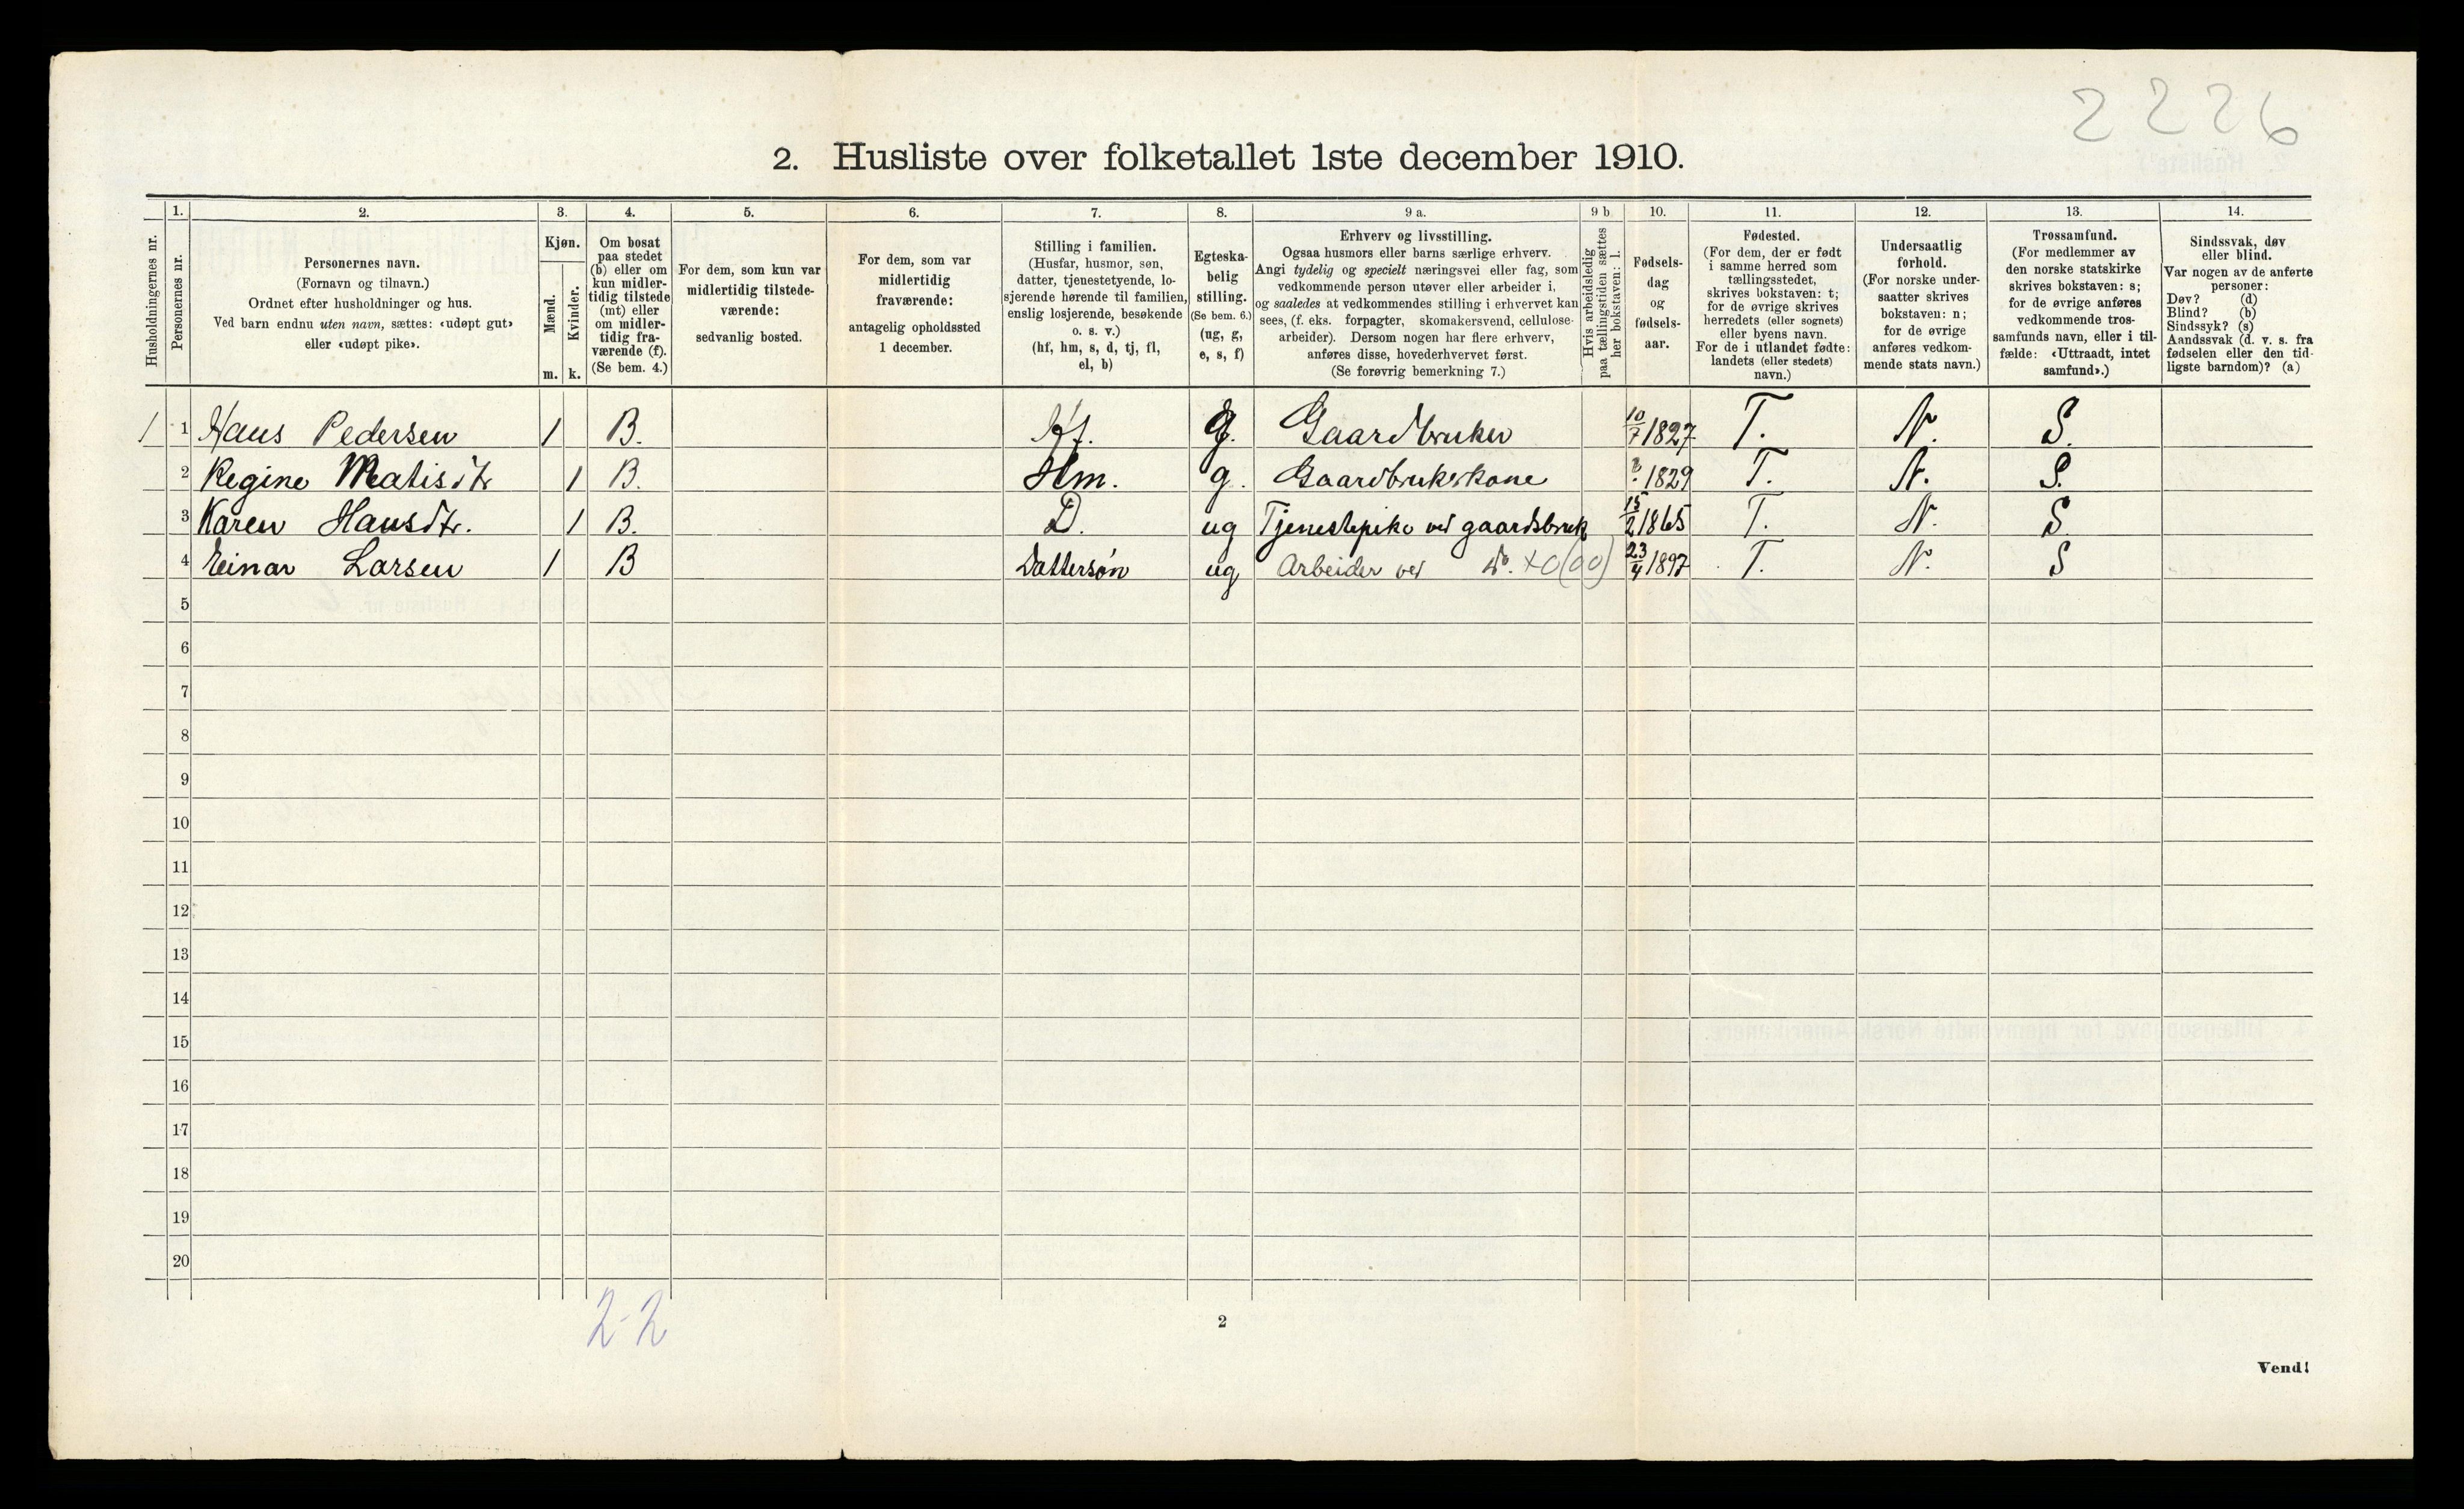 2226
2. Husliste over folketallet 1ste december 1910.
Husholdningernes nr.
1. 2. 3. 4. 5. 6. 7. 8. 9 a. 9 b 10. 11. 12. 13. 14.
Personernes nr.
Personernes navn.
(Fornavn og tilnavn.)
Ordnet efter husholdninger og hus.
Ved barn endnu uten navn, sættes: «udøpt gut»
eller «udøpt pike».
Kjøn.
Mænd.
Kvinder.
m. k.
Om bosat
paa stedet
(b) eller om
kun midler-
tidig tilstede
(mt) eller
om midler-
tidig fra-
værende (f).
(Se bem. 4.)
For dem, som kun var
midlertidig tilstede-
værende:
sedvanlig bosted.
For dem, som var
midlertidig
fraværende:
antagelig opholdssted
1 december.
Stilling i familien.
(Husfar, husmor, søn,
datter, tjenestetyende, lo-
sjerende hørende til familien,
enslig losjerende, besøkende
o. s. v.)
(hf, hm, s, d, tj, fl,
el, b)
Egteska-
belig
stilling.
(Se bem. 6.)
(ug, g,
e, s, f)
Erhverv og livsstilling.
Ogsaa husmors eller barns særlige erhverv.
Angi tydelig og specielt næringsvei eller fag, som
vedkommende person utøver eller arbeider i,
og saaledes at vedkommendes stilling i erhvervet kan
sees, (f. eks. forpagter, skomakersvend, cellulose-
arbeider). Dersom nogen har flere erhverv,
anføres disse, hovederhvervet først.
(Se forøvrig bemerkning 7.)
Hvis arbeidsledig
paa tællingstiden sættes
her bokstaven: l.
Fødsels-
dag
og
fødsels-
aar.
Fødested.
(For dem, der er født
i samme herred som
tællingsstedet,
skrives bokstaven: t;
for de øvrige skrives
herredets (eller sognets)
eller byens navn.
For de i utlandet fødte:
landets (eller stedets)
navn.)
Undersaatlig
forhold.
(For norske under-
saatter skrives
bokstaven: n;
for de øvrige
anføres vedkom-
mende stats navn.)
Trossamfund.
(For medlemmer av
den norske statskirke
skrives bokstaven: s;
for de øvrige anføres
vedkommende tros-
samfunds navn, eller i til-
fælde: «Uttraadt, intet
samfund».)
Sindssvak, døv
eller blind.
Var nogen av de anførte
personer:
Døv? (d)
Blind? (b)
Sindssyk? (s)
Aandssvak (d. v. s. fra
fødselen eller den tid-
ligste barndom)? (a)
1 1 Hans Pedersen 1 B. Hf. g. Gaardbruker 10/7 1827 T. N. S.
2 Regine Matisdtr 1 B. Hm. g. Gaardbrukerkone 1829 T. N. S.
3 Karen Hansdtr. 1 B. D. ug Tjenestepike ved gaardsbruk 15/2 1865 T. N. S.
4 Einar Larsen 1 B Dattersøn ug Arbeider ved do. 23/4 1897 T. N. S
5
6
7
8
9
10
11
12
13
14
15
16
17
18
19
20
2-2
2
Vend!